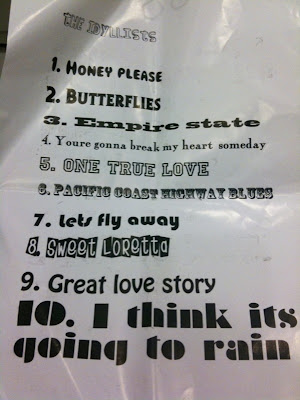 THE IDYLLISTS
1. HONEY PLEASE
2. BUTTERFLIES
3. Empire state
4. Youre gonna break my heart someday
5. ONE TRUE LOVE
6. PACIFIC COAST HIGHWAY BLUES
7. Lets fly away
8. Sweet Loretta
9. Great love story
10. I think its
going to rain